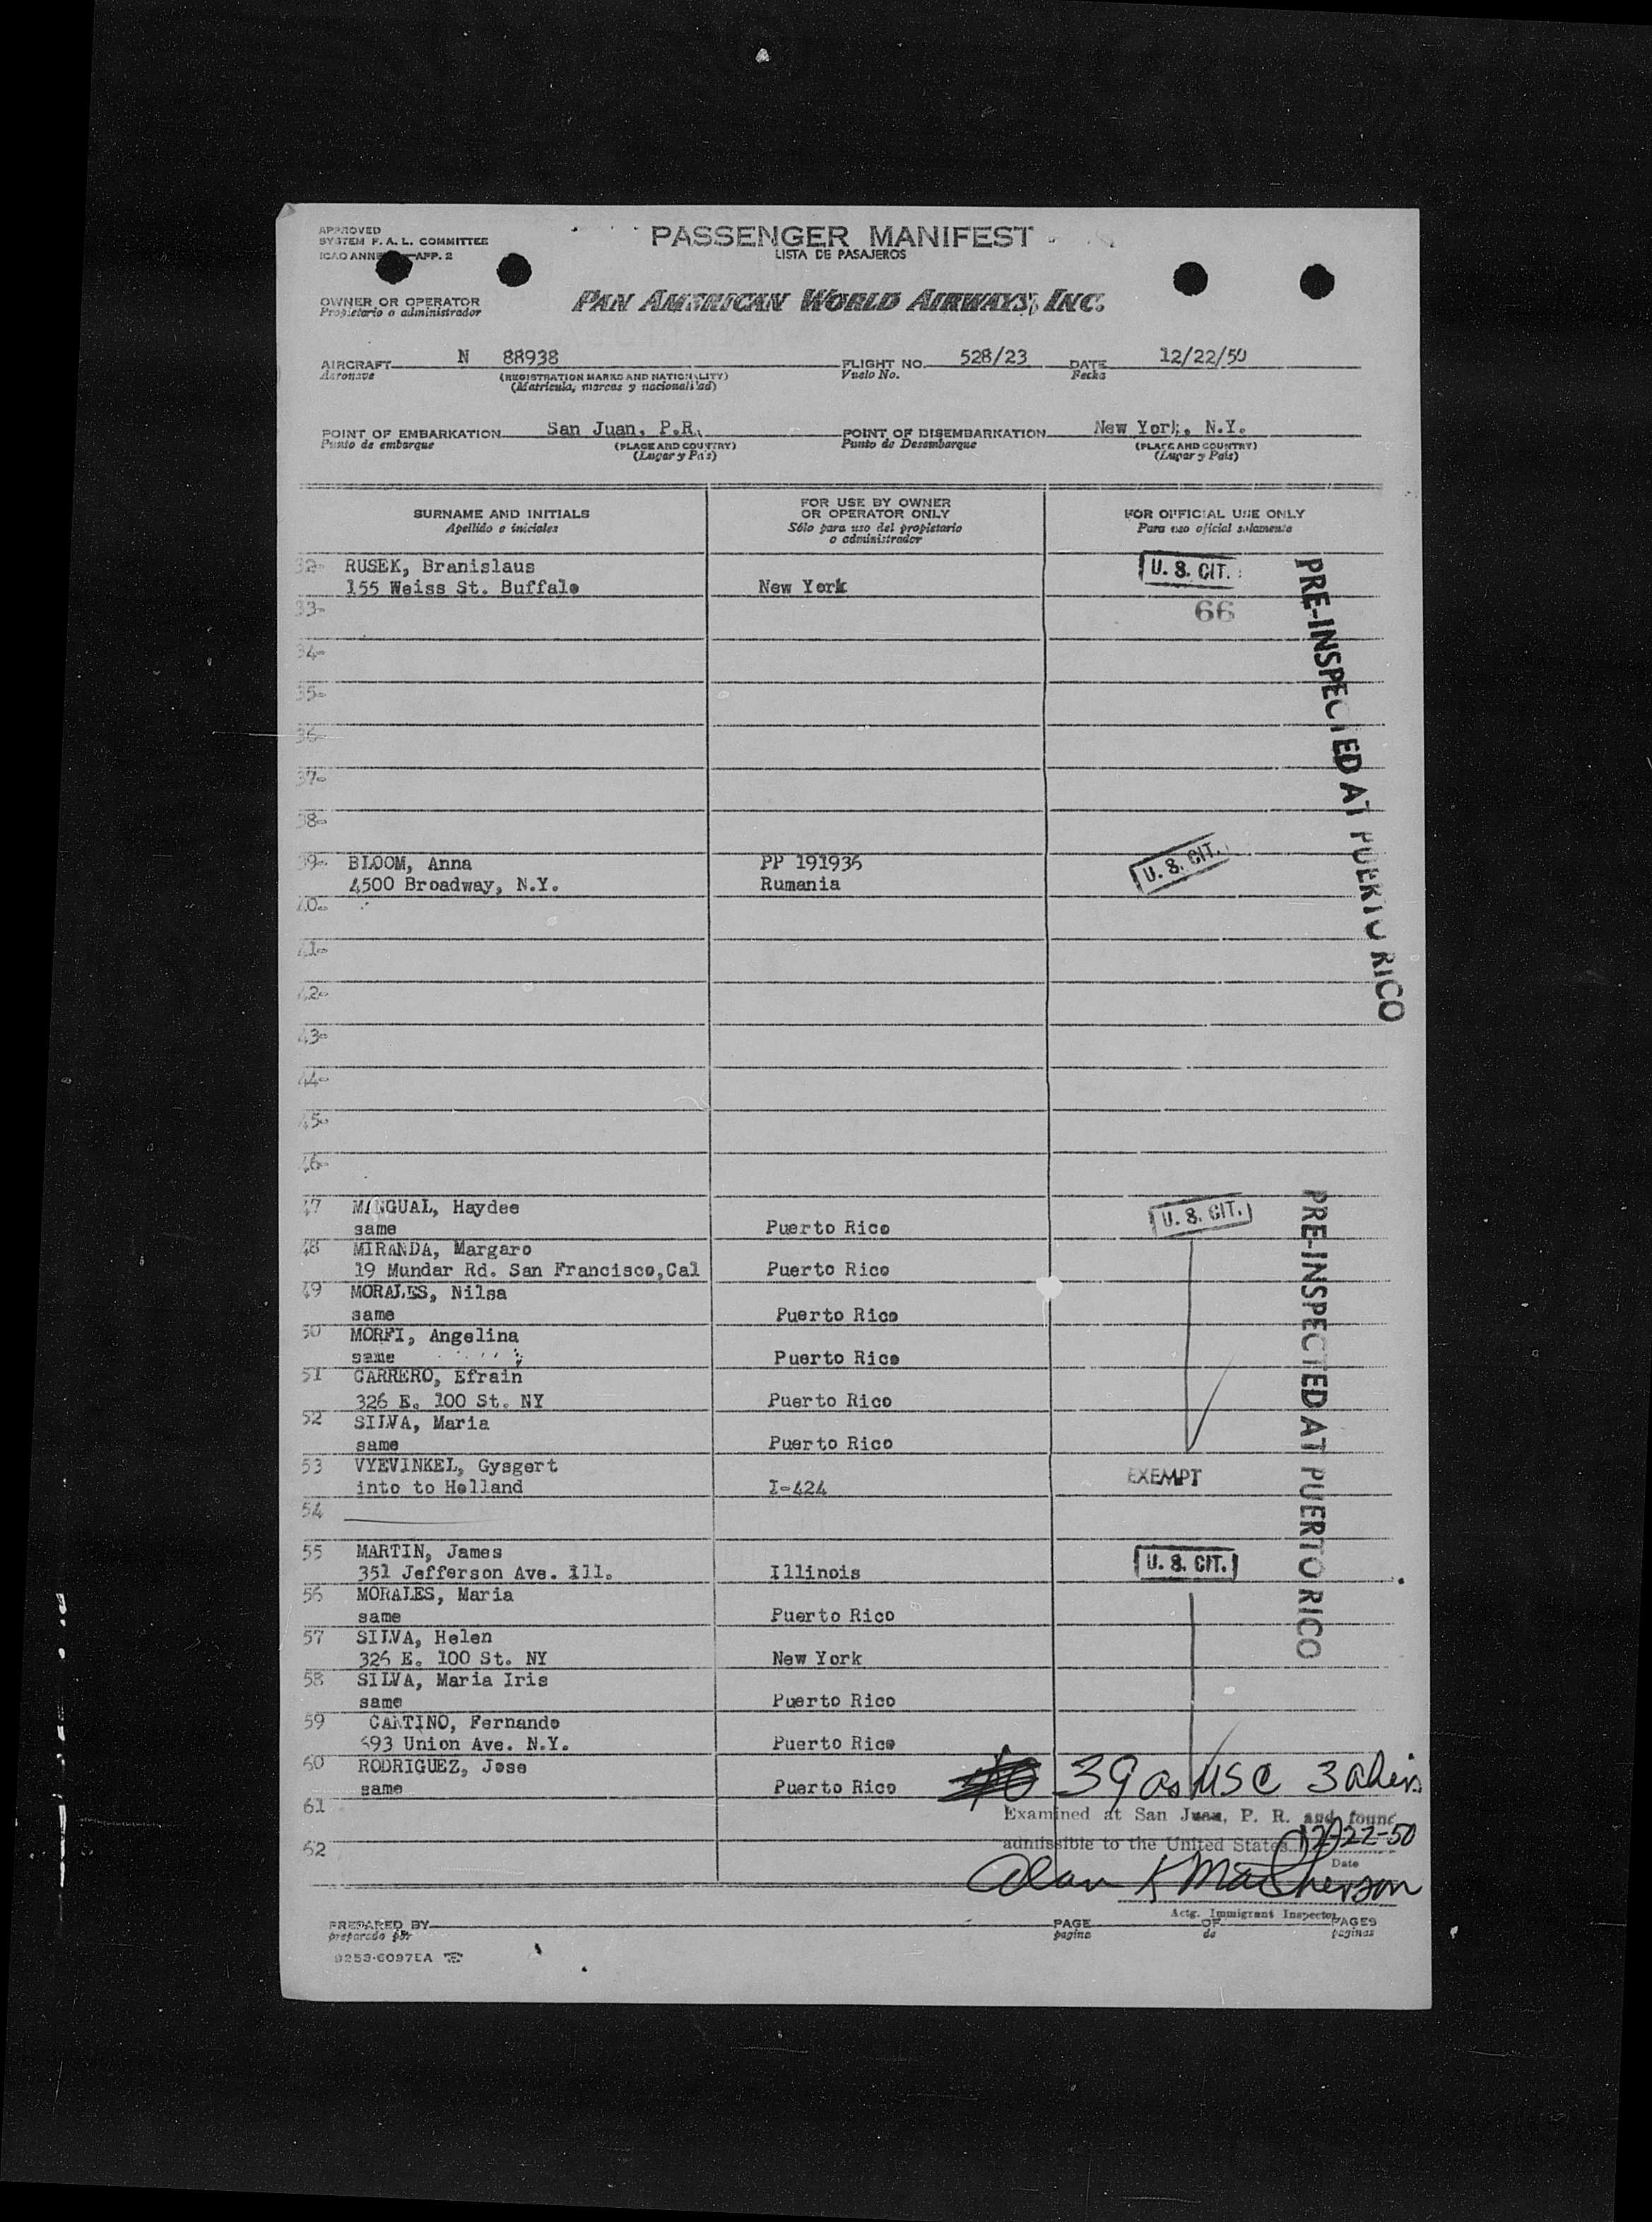 APPROVED
SYSTEM F. A. L. COMMITTEE
ICAO ANNE APP. 2
PASSENGER MANIFEST
LISTA DE PASAJEROS
OWNER OR OPERATOR
Propietario o administrador
PAN AMERICAN WORLD AIRWAYS, INC.
AIRCRAFT N 88938 FLIGHT NO. 528/23 DATE 12/22/50
Aeronave (REGISTRATION MARKS AND NATIONALITY) Vuelo No. Fecha
(Matricula, marcas y nacionalidad)
POINT OF EMBARKATION San Juan, P.R. POINT OF DISEMBARKATION New York, N.Y.
Punto de embarque (PLACE AND COUNTRY) Punto de Desembarque (PLACE AND COUNTRY)
(Lugar y País) (Lugar y País)
SURNAME AND INITIALS
Apellido e iniciales
FOR USE BY OWNER
OR OPERATOR ONLY
Sólo para uso del propietario
o administrador
FOR OFFICIAL USE ONLY
Para uso oficial solamente
32- RUSEK, Branislaus U. S. CIT.
155 Weiss St. Buffalo New York
33- 66
34-
35-
36-
37-
38-
39- BLOOM, Anna PP 191936 U. S. CIT.
4500 Broadway, N.Y. Rumania
40-
41-
42-
43-
44-
45-
46-
PRE-INSPECTED AT PUERTO RICO
47 MANGUAL, Haydee U. S. CIT.
same Puerto Rico
48 MIRANDA, Margaro
19 Mundar Rd. San Francisco,Cal Puerto Rico
49 MORALES, Nilsa
same Puerto Rico
50 MORFI, Angelina
same Puerto Rico
51 CARRERO, Efrain
326 E. 100 St. NY Puerto Rico
52 SILVA, Maria
same Puerto Rico
53 VYEVINKEL, Gysgert EXEMPT
into to Holland I-424
54
55 MARTIN, James U. S. CIT.
351 Jefferson Ave. Ill. Illinois
56 MORALES, Maria
same Puerto Rico
57 SILVA, Helen
326 E. 100 St. NY New York
58 SILVA, Maria Iris
same Puerto Rico
59 CANTINO, Fernando
693 Union Ave. N.Y. Puerto Rico
60 RODRIGUEZ, Jose
same Puerto Rico
PRE-INSPECTED AT PUERTO RICO
39 as USC 3 aliens
61
Examined at San Juan, P. R. and found
62 admissible to the United States 12-22-50
Date
Alan K MacPherson
Actg. Immigrant Inspector
PREPARED BY PAGE OF PAGES
preparado por pagina de paginas
9253-6097EA